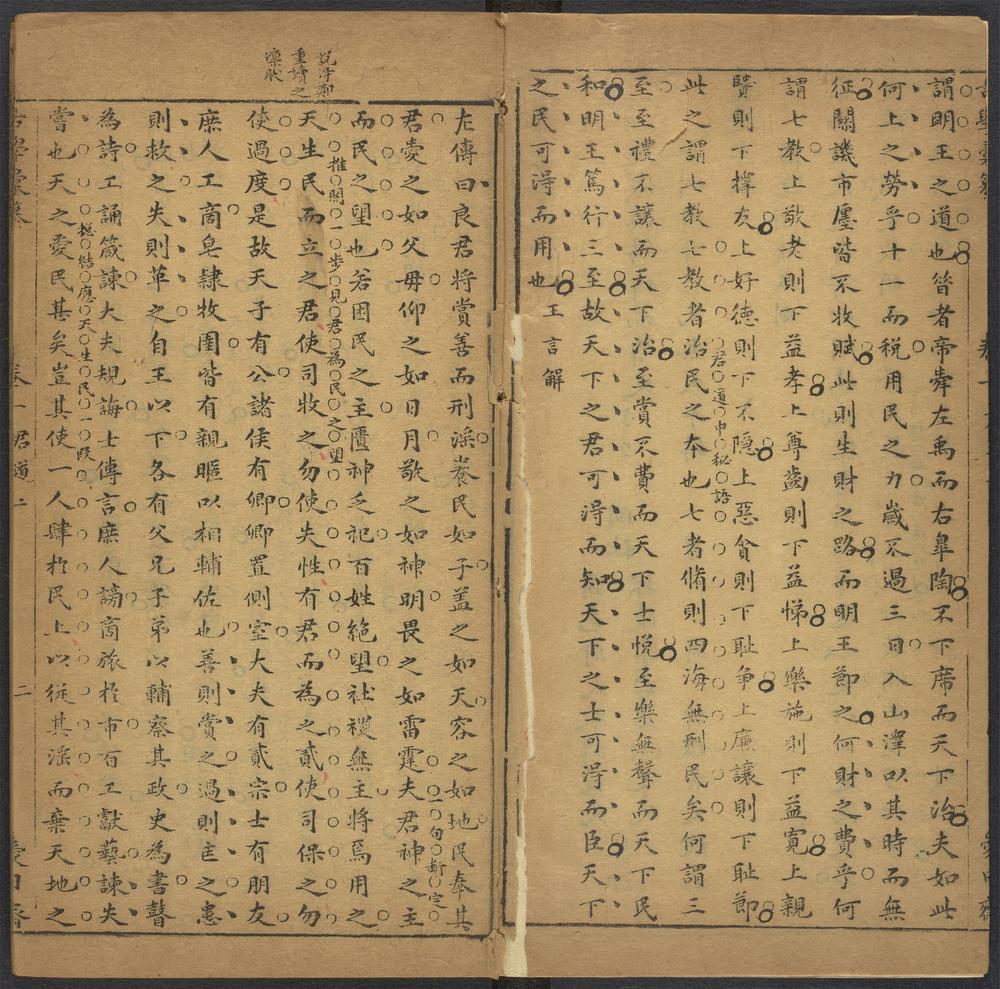 謂明王之道也昔者帝舜左禹而右皐陶不下席而天下治夫如此
何上之勞乎十一而稅用民之力歲不過三日入山澤以其時而無
征關譏市廛皆不收賦此則生財之路而明王節之何財之費乎何
謂七教上敬老則下益孝上尊齒則下益悌上樂施則下益寬上親
賢則下擇友上好德則下不隱上惡貪則下耻爭上廉讓則下耻節
君道中秘語
此之謂七教七教者治民之本也七者脩則四海無刑民矣何謂三
至至禮不讓而天下治至賞不費而天下士悅至樂無聲而天下民
和明王篤行三至故天下之君可淂而知天下之士可淂而臣天下
之民可淂而用也王言解
重讀之
左傳曰良君将賞善而刑淫養民如子盖之如天容之如地民奉其
一句斷定
君愛之如父母仰之如日月敬之如神明畏之如雷霆夫君神之主
而民之望也若困民之主匱神乏祀百姓絶望社稷無主將焉用之
推開一步見君為民之望
天生民而立之君使司牧之勿使失性有君而為之貳使司保之勿
使過度是故天子有公諸侯有卿卿置側室大夫有貳宗士有朋友
庶人工商皂隸牧圉皆有親暱以相輔佐也善則賞之過則匡之患
則救之失則革之自王以下各有父兄子弟以輔察其政史為書瞽
為詩工誦箴諫大夫規誨士傳言庶人謗商旅於市百工獻藝諫失
總結應天生民一段
嘗也天之愛民甚矣豈其使一人肆於民上以從其淫而棄天地之
卷一 君道二 二